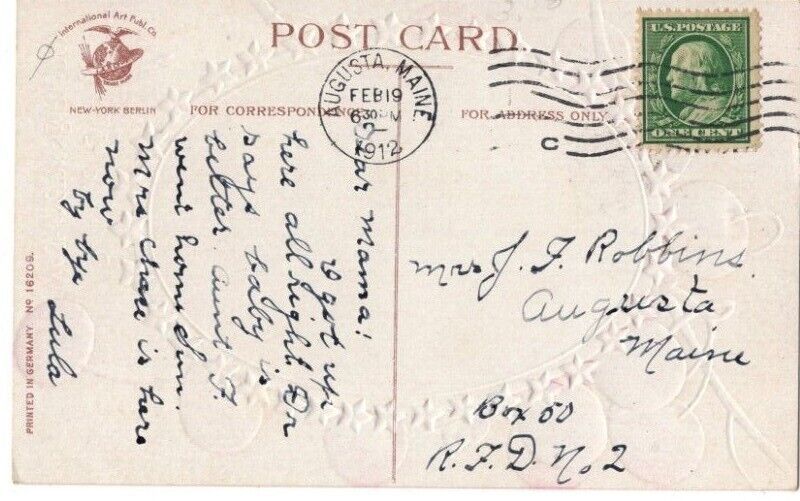 International Art Publ. Co.
NEW-YORK BERLIN
POST CARD.
FOR CORRESPONDENCE
FOR ADDRESS ONLY
AUGUSTA, MAINE.
FEB 19
630 PM
1912
C
U.S. POSTAGE
ONE CENT
Dear Mama:
I got up
here all right Dr
says baby is
better. Aunt F.
went home Sun.
Mrs Chase is here
now
by bye
Lula
Mrs J. F. Robbins.
Augusta
Maine
Box 50
R.F.D. No. 2
PRINTED IN GERMANY No 16209.